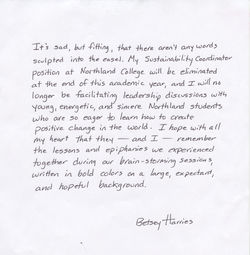 It's sad, but fitting, that there aren't any words
sculpted into the easel. My Sustainability Coordinator
position at Northland College will be eliminated
at the end of this academic year, and I will no
longer be facilitating leadership discussions with
young, energetic, and sincere Northland students
who are so eager to learn how to create
positive change in the world. I hope with all
my heart that they — and I — remember
the lessons and epiphanies we experienced
together during our brain-storming sessions,
written in bold colors on a large, expectant,
and hopeful background.
Betsey Harries